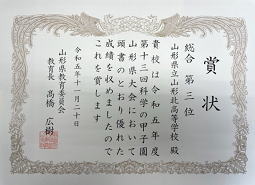 賞状
総合 第三位
山形県立山形北高等学校 殿
貴校は令和五年度
第十三回科学の甲子園
山形県大会において
頭書のとおり優れた
成績を収めましたので
これを賞します
令和五年十一月二十日
山形県教育委員会
教育長 髙橋 広樹